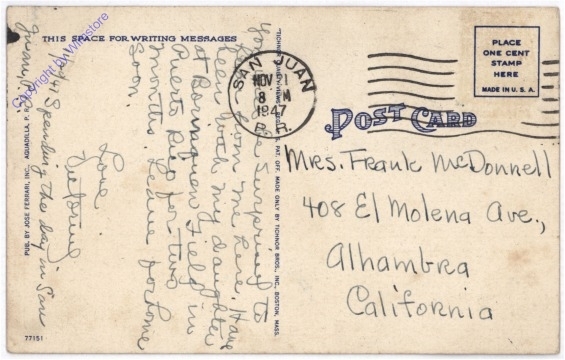 THIS SPACE FOR WRITING MESSAGES
You be surprised to
from me here. Have
been with my daughter
at Borinquen Field in
Puerto Rico for two
months. Leave for home
soon.
Love,
Spending the day in San
Juan,
Copyright by Winstore
PUB. BY JOSE FERRARI, INC. AGUADILLA, P. R.
77151
MADE ONLY BY TICHNOR BROS., INC., BOSTON, MASS.
SAN JUAN
NOV 21
8 M
1947
P. R.
PLACE
ONE CENT
STAMP
HERE
MADE IN U. S. A.
POST CARD
Mrs. Frank McDonnell
408 El Molena Ave.,
Alhambra
California